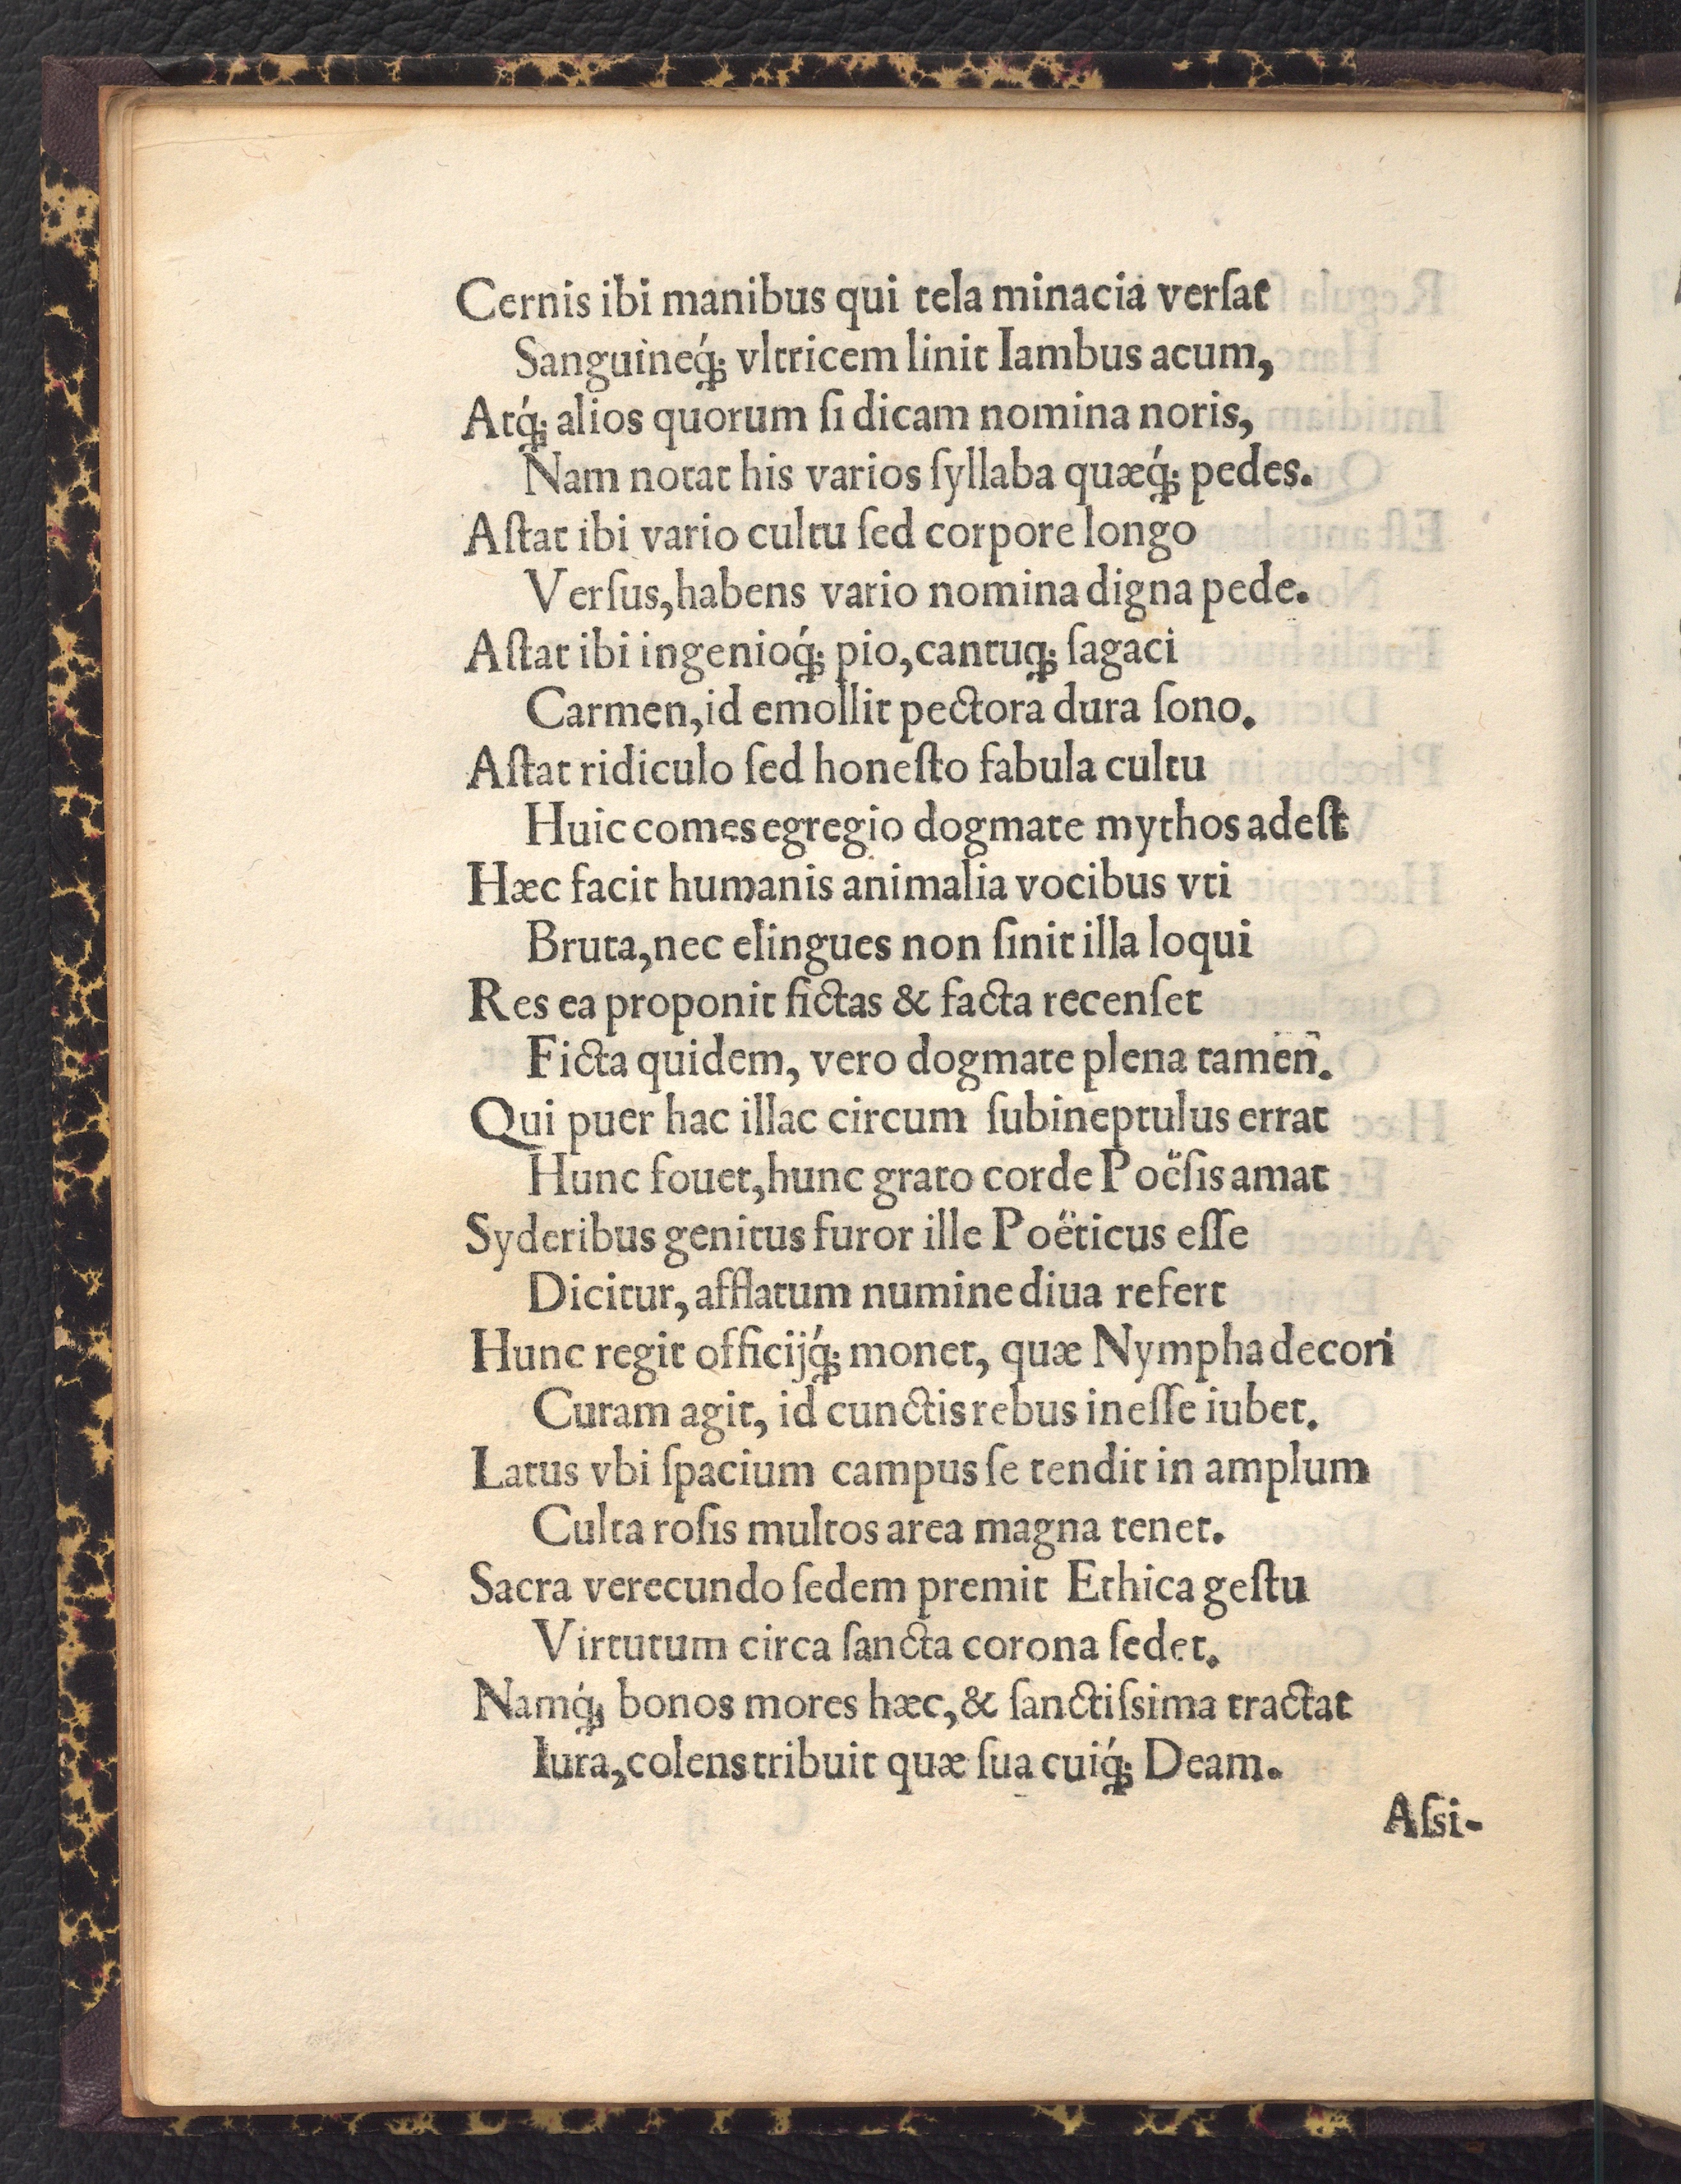 Cernis ibi manibus qui tela minacia verſat
Sanguineq́; vltricem linit Iambus acum,
Atq́; alios quorum ſi dicam nomina noris,
Nam notat his varios ſyllaba quæq́; pedes.
Aſtat ibi vario cultu ſed corpore longo
Verſus,habens vario nomina digna pede.
Aſtat ibi ingenioq́; pio,cantuq; ſagaci
Carmen,id emollit pectora dura ſono.
Aſtat ridiculo ſed honeſto fabula cultu
Huic comes egregio dogmate mythos adeſt
Hæc facit humanis animalia vocibus vti
Bruta,nec elingues non ſinit illa loqui
Res ea proponit fictas & facta recenſet
Ficta quidem, vero dogmate plena tamen̄.
Qui puer hac illac circum ſubineptulus errat
Hunc fouet,hunc grato corde Poëſis amat
Syderibus genitus furor ille Poëticus eſſe
Dicitur, afflatum numine diua refert
Hunc regit officijq́; monet, quæ Nympha decori
Curam agit, id cunctis rebus ineſſe iubet.
Latus vbi ſpacium campus ſe tendit in amplum
Culta roſis multos area magna tenet.
Sacra verecundo ſedem premit Ethica geſtu
Virtutum circa ſancta corona ſedet.
Namq́; bonos mores hæc,& ſanctiſsima tractat
Iura,colens tribuit quæ ſua cuiq́; Deam.
Aſsi-